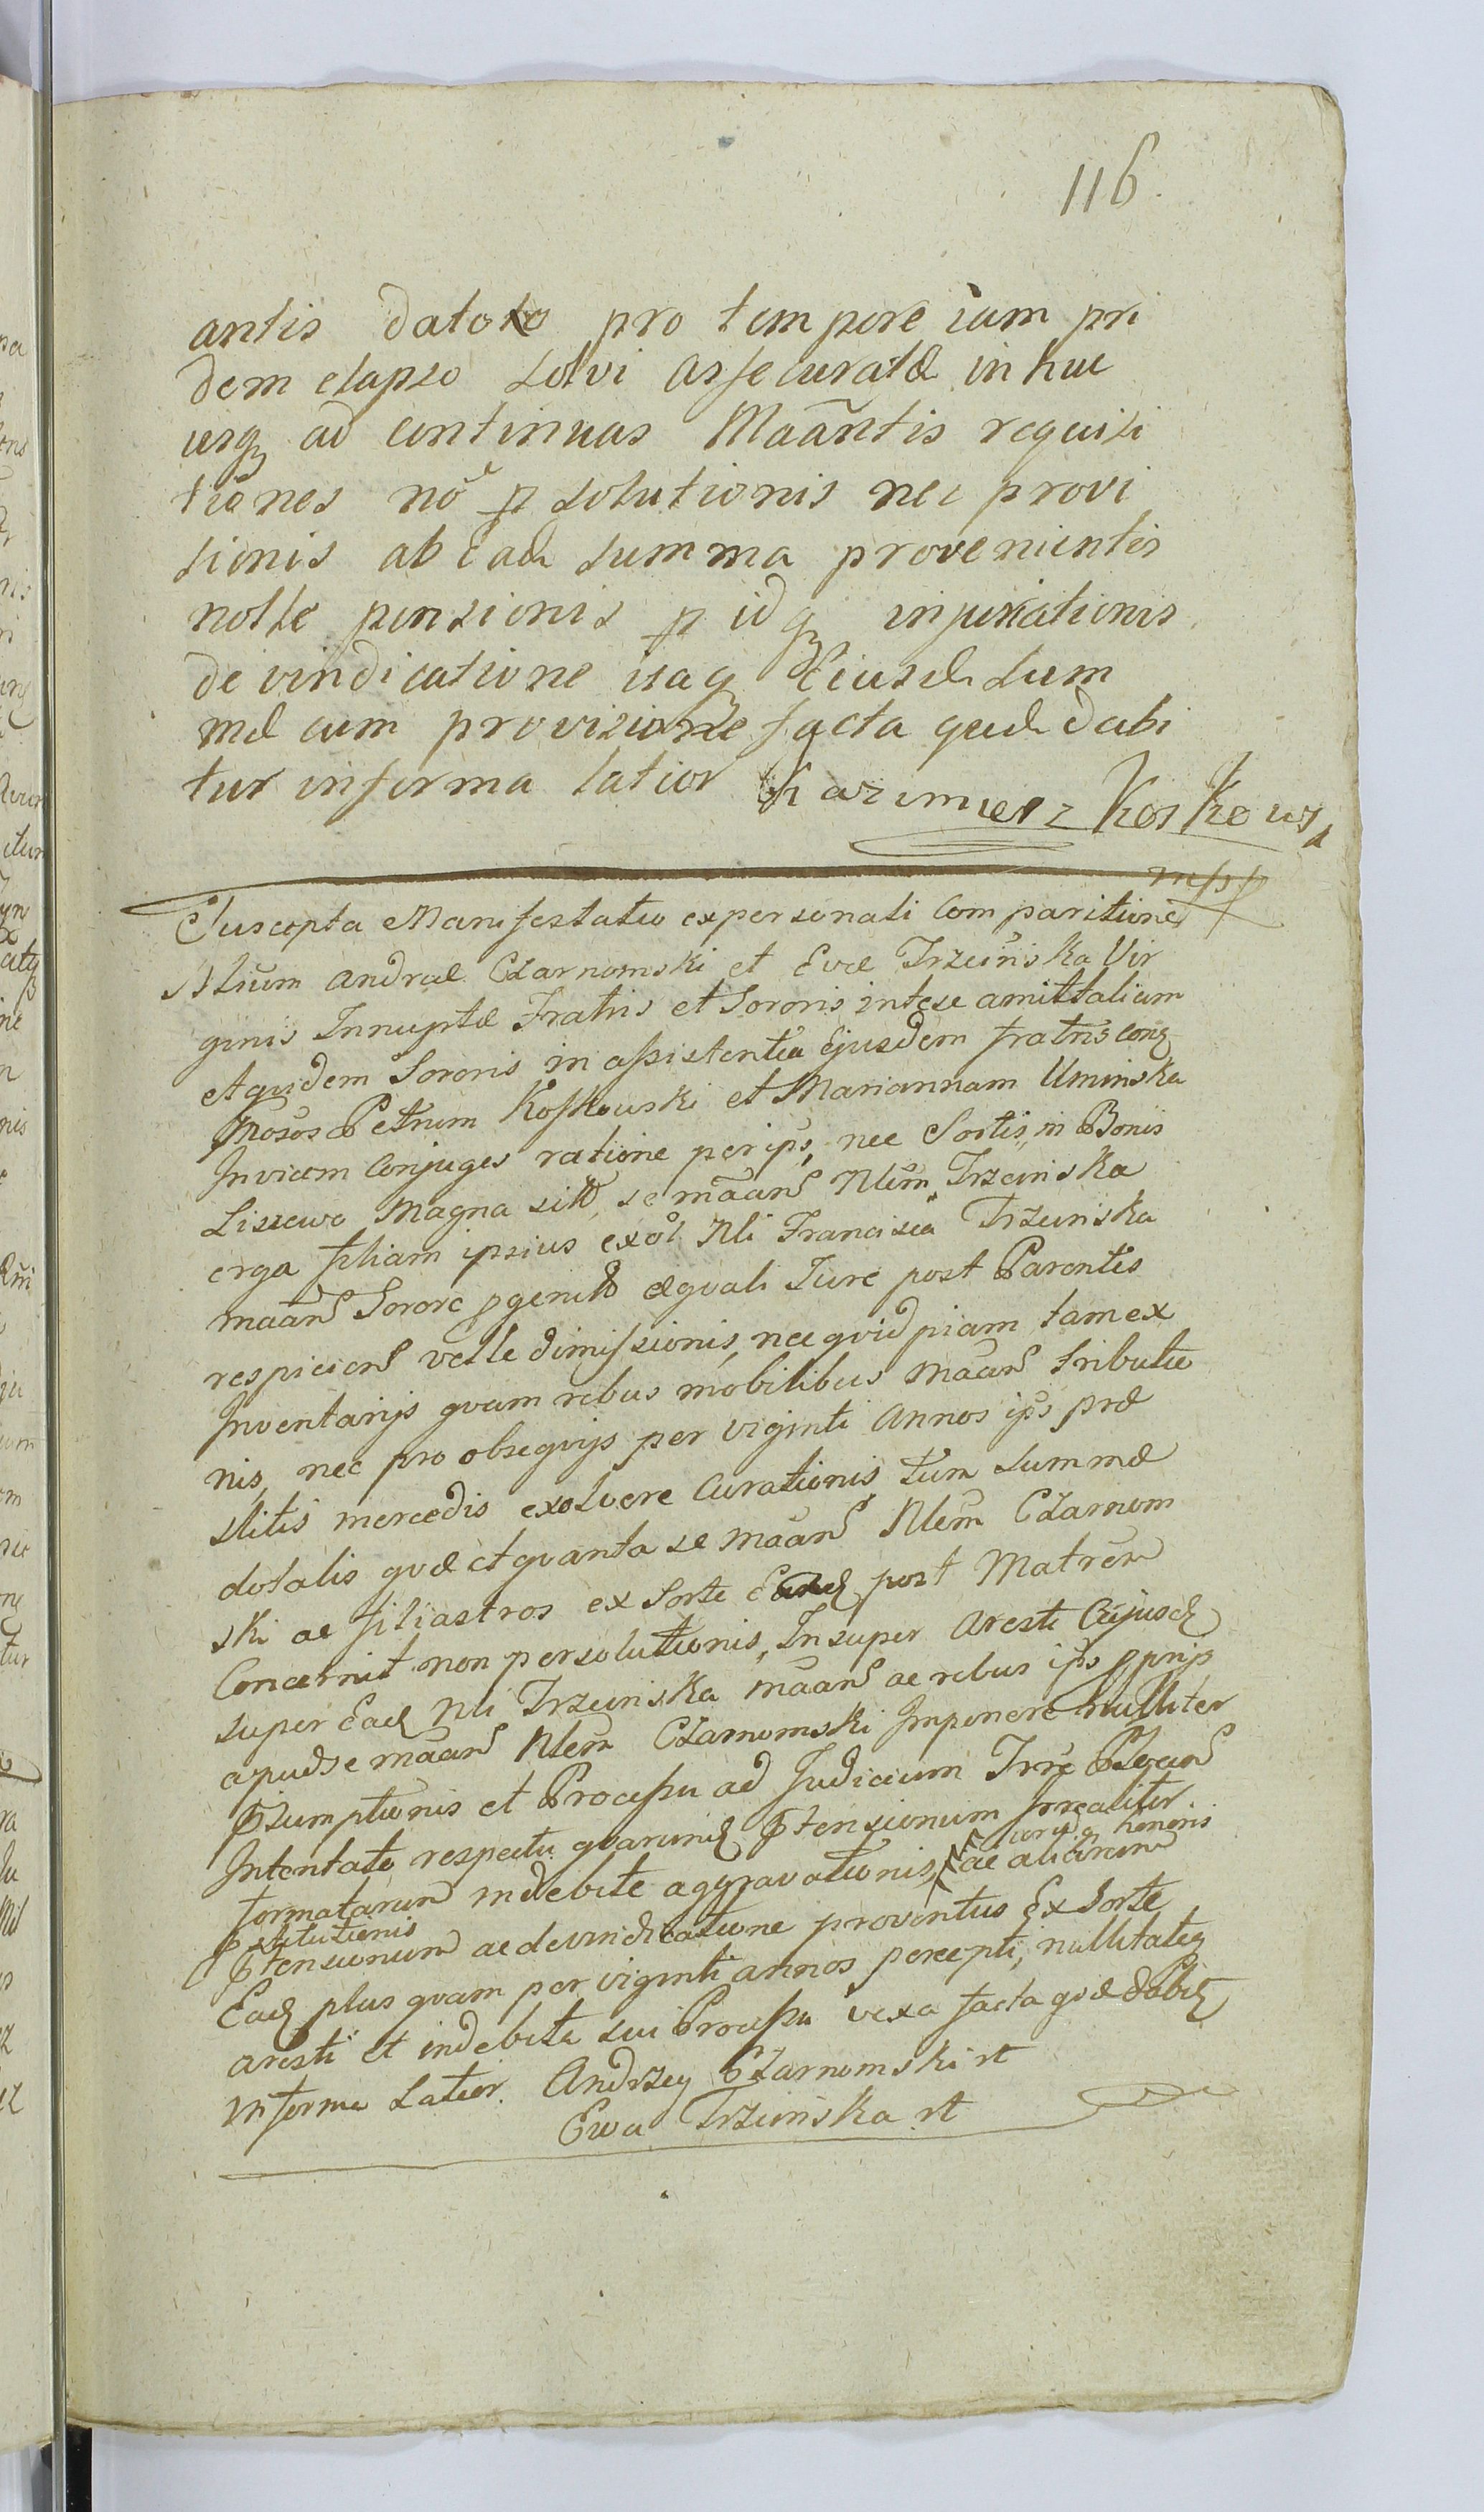 116.
antis dato to pro tempore iam pri
dem elapso solvi assecuratæ inhuc
usq ad continuas Maãntis requisi
tiones nõ p solutionis nec provi
sionis ab ead summa provenientis
nolle pensionis p idq injuriationis
de vindicatione itaq Eiusd sum
mæ cum provisione facta quæ dabi
tur in forma latior Kazimierz Koskows
mpp
Suscepta Manifestatio ex personali Comparitione
Nlium Andreæ Czarnomski et Evæ Trzcinska Vir
ginis Innuptæ Fratris et Sororis intese amittalium
et quidem Sororis in assistentia Ejusdem fratris cong
Gnosos Petrum Koskowski et Mariannam Uminska
Invicem Conjuges ratione per ips, nec Sortis in Bonis
Liszewo Magna sitæ, se mãan Nlem Trzcinska
erga filiam ipsius ex ol Nli Francisca Trzcinska
maãn Sorore pgenitæ æquali Jure post Parentes
respicien velle dimissionis, nec quid piam tam ex
Inventarijs quam rebus mobilibus maãn tributio
nis, nec pro obsequijs per viginti Annos ips præ
stitis mercedis exolvere Curationis, tum summæ
dotalis quæ et quanta se maãn Nlem Czarnom
ski ac filiastros ex Sorte Ead post Matrem
Concernit non persolutionis, Insuper Aresti Cujusd
super Ead Nli Trzcinska maãn ac rebus ips pprijs
apud se maãn Nlem Czarnomski Imponere nulliter
Psumptionis et Processu ad Judicium Trre
Intentato respectu quarund Ptensionum irrealiter
formatarum indebite aggravationis, ac aliarum
honoris
stitutionis
Ptensionum ac de vindicatione proventus Ex Sorte
Ead plus quam per viginti annos percepti, nullitateq
aresti et indebite sui Processu vexa facta quæ dabit
in forma Latior. Andrzey Czarnomski rt
Ewa Trzcinska rt